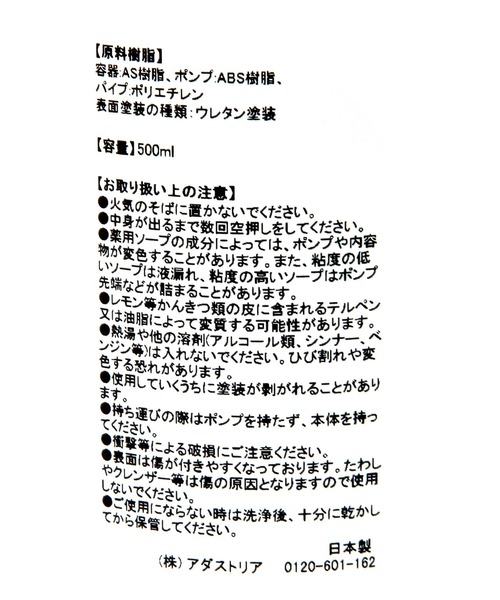 【原料樹脂】
容器:AS樹脂、ポンプ:ABS樹脂、
パイプ:ポリエチレン
表面塗装の種類:ウレタン塗装
【容量】500ml
【お取り扱い上の注意】
●火気のそばに置かないでください。
●中身が出るまで数回空押しをしてください。
●薬用ソープの成分によっては、ポンプや内容
物が変色することがあります。また、粘度の低
いソープは液漏れ、粘度の高いソープはポンプ
先端などが詰まることがあります。
●レモン等かんきつ類の皮に含まれるテルペン
又は油脂によって変質する可能性があります。
●熱湯や他の溶剤(アルコール類、シンナー、ベ
ンジン等)は入れないでください。ひび割れや変
色する恐れがあります。
●使用していくうちに塗装が剥がれることがあり
ます。
●持ち運びの際はポンプを持たず、本体を持っ
てください。
●衝撃等による破損にご注意ください。
●表面は傷が付きやすくなっております。たわし
やクレンザー等は傷の原因となりますので使用
しないでください。
●ご使用にならない時は洗浄後、十分に乾かし
てから保管してください。
日本製
(株) アダストリア 0120-601-162